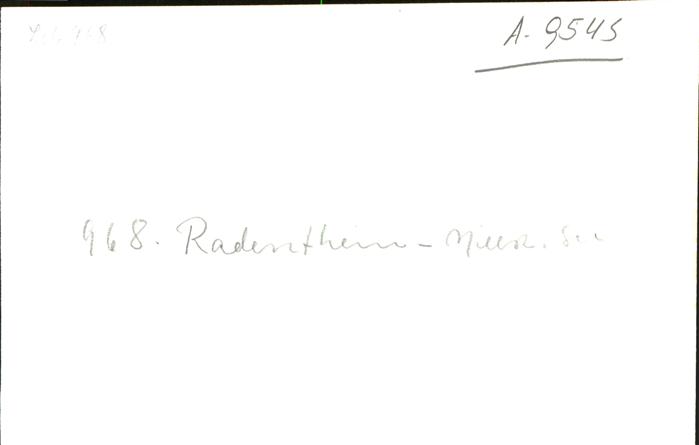 A. 9545
968. Radenthein - Millst. See